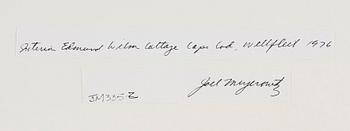 Interior Edmund Wilson Cottage Cape Cod, Wellfleet 1976
JM335Z
Joel Meyerowitz